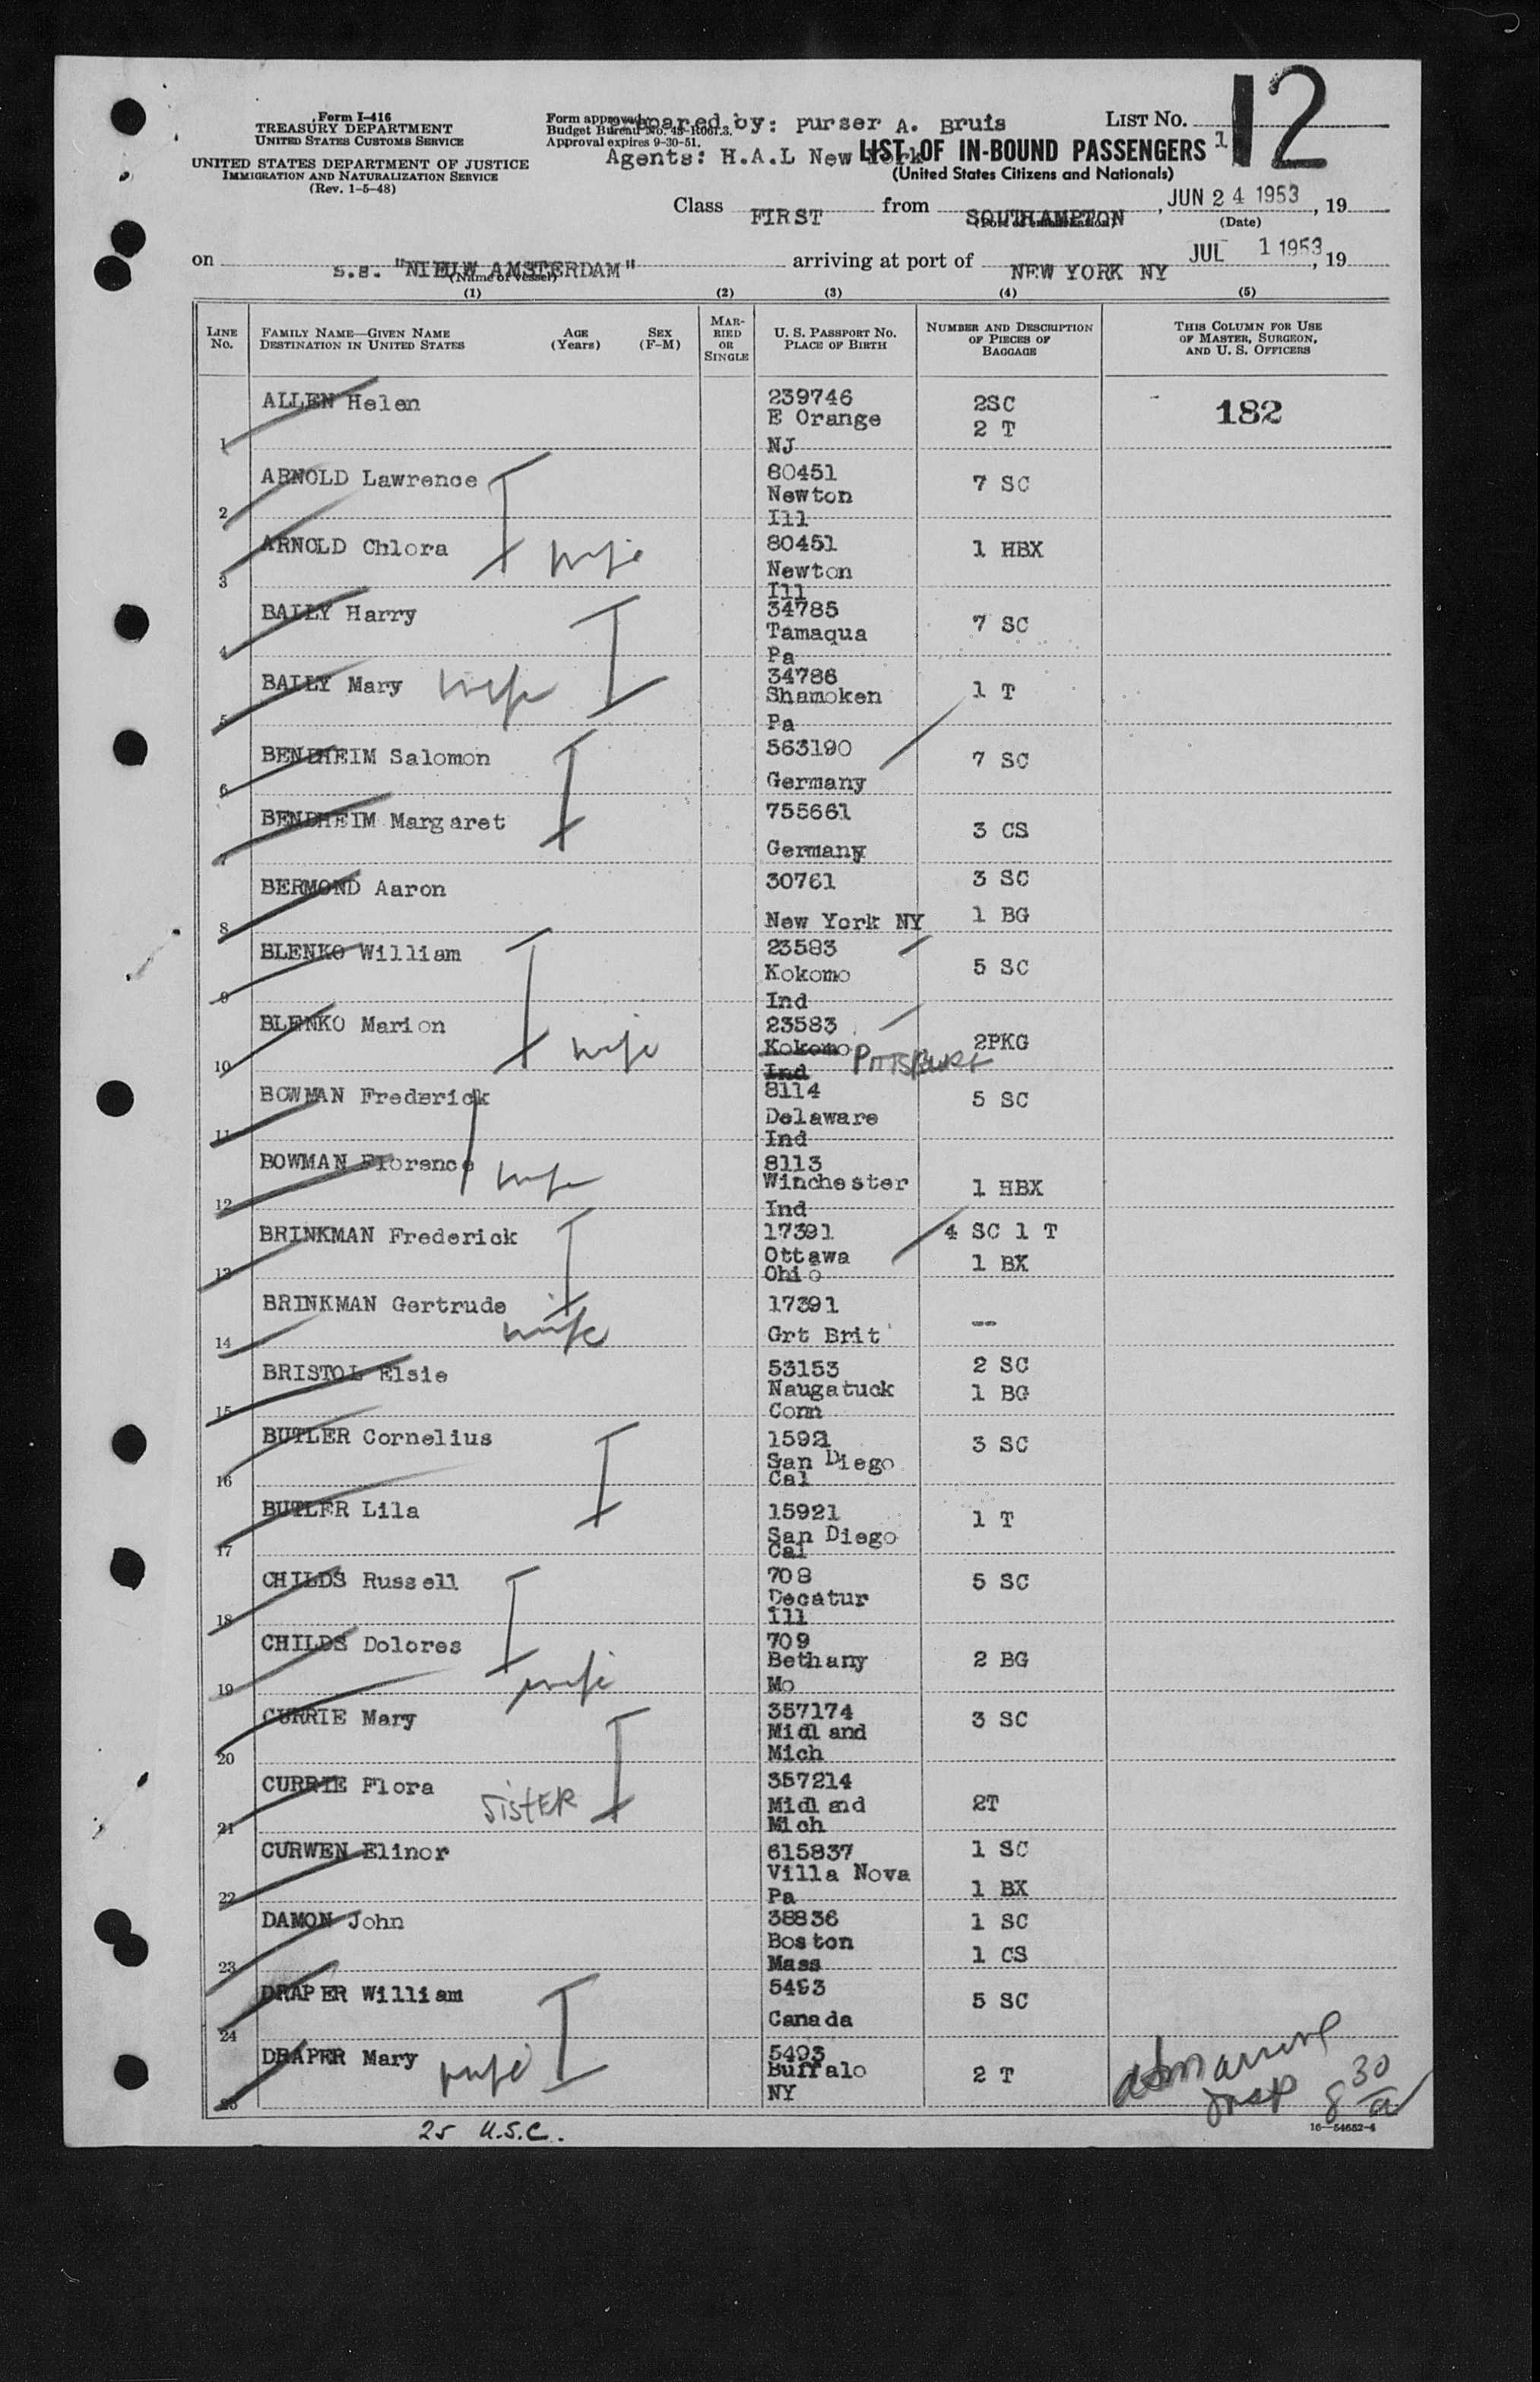 Form I-416
TREASURY DEPARTMENT
UNITED STATES CUSTOMS SERVICE
UNITED STATES DEPARTMENT OF JUSTICE
IMMIGRATION AND NATURALIZATION SERVICE
(Rev. 1-5-48)
Form approved.
Budget Bureau No. 43-R061.3.
Approval expires 9-30-51.
by: purser A. Bruis
Agents: H.A.L New York
LIST No. 1
12
LIST OF IN-BOUND PASSENGERS
(United States Citizens and Nationals)
Class FIRST from SOUTHAMPTON, JUN 24 1953, 19
(Port of embarkation) (Date)
on s.s. "NIEUW AMSTERDAM" arriving at port of NEW YORK NY JUL 1 1953, 19
(Name of vessel)
(1) (2) (3) (4) (5)
LINE No. FAMILY NAME—GIVEN NAME DESTINATION IN UNITED STATES AGE (Years) SEX (F-M) MARRIED OR SINGLE U. S. PASSPORT No. PLACE OF BIRTH NUMBER AND DESCRIPTION OF PIECES OF BAGGAGE THIS COLUMN FOR USE OF MASTER, SURGEON, AND U. S. OFFICERS
1 ALLEN Helen 239746 E Orange NJ 2SC 2 T 182
2 ARNOLD Lawrence 80451 Newton Ill 7 SC
3 ARNOLD Chlora wife 80451 Newton Ill 1 HBX
4 BAILY Harry 34785 Tamaqua Pa 7 SC
5 BAILY Mary wife 34786 Shamoken Pa 1 T
6 BENDHEIM Salomon 563190 Germany 7 SC
7 BENDHEIM Margaret 755661 Germany 3 CS
8 BERMOND Aaron 30761 New York NY 3 SC 1 BG
9 BLENKO William 23583 Kokomo Ind 5 SC
10 BLENKO Marion wife 23583 Kokomo Ind PITTSBURG 2PKG
11 BOWMAN Frederick 8114 Delaware Ind 5 SC
12 BOWMAN Florence wife 8113 Winchester Ind 1 HBX
13 BRINKMAN Frederick 17391 Ottawa Ohio 4 SC 1 T 1 BX
14 BRINKMAN Gertrude wife 17391 Grt Brit --
15 BRISTOL Elsie 53153 Naugatuck Conn 2 SC 1 BG
16 BUTLER Cornelius 15921 San Diego Cal 3 SC
17 BUTLER Lila 15921 San Diego Cal 1 T
18 CHILDS Russell 708 Decatur Ill 5 SC
19 CHILDS Dolores wife 709 Bethany Mo 2 BG
20 CURRIE Mary 357174 Midland Mich 3 SC
21 CURRIE Flora SISTER 357214 Midland Mich 2T
22 CURWEN Elinor 615837 Villa Nova Pa 1 SC 1 BX
23 DAMON John 38836 Boston Mass 1 SC 1 CS
24 DRAPER William 5493 Canada 5 SC
25 DRAPER Mary wife 5493 Buffalo NY 2 T
Insp 8 30 a
25 U.S.C.
16—54652-4